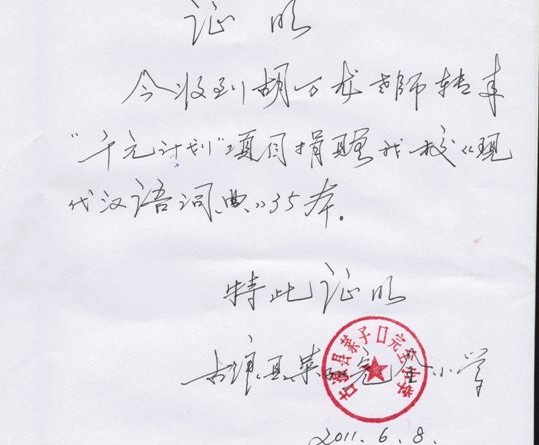 证明
今收到胡万龙老师转来
"千元计划"项目捐赠我校《现
代汉语词典》35本。
特此证明
古浪县菜子口完全小学
2011.6.8.